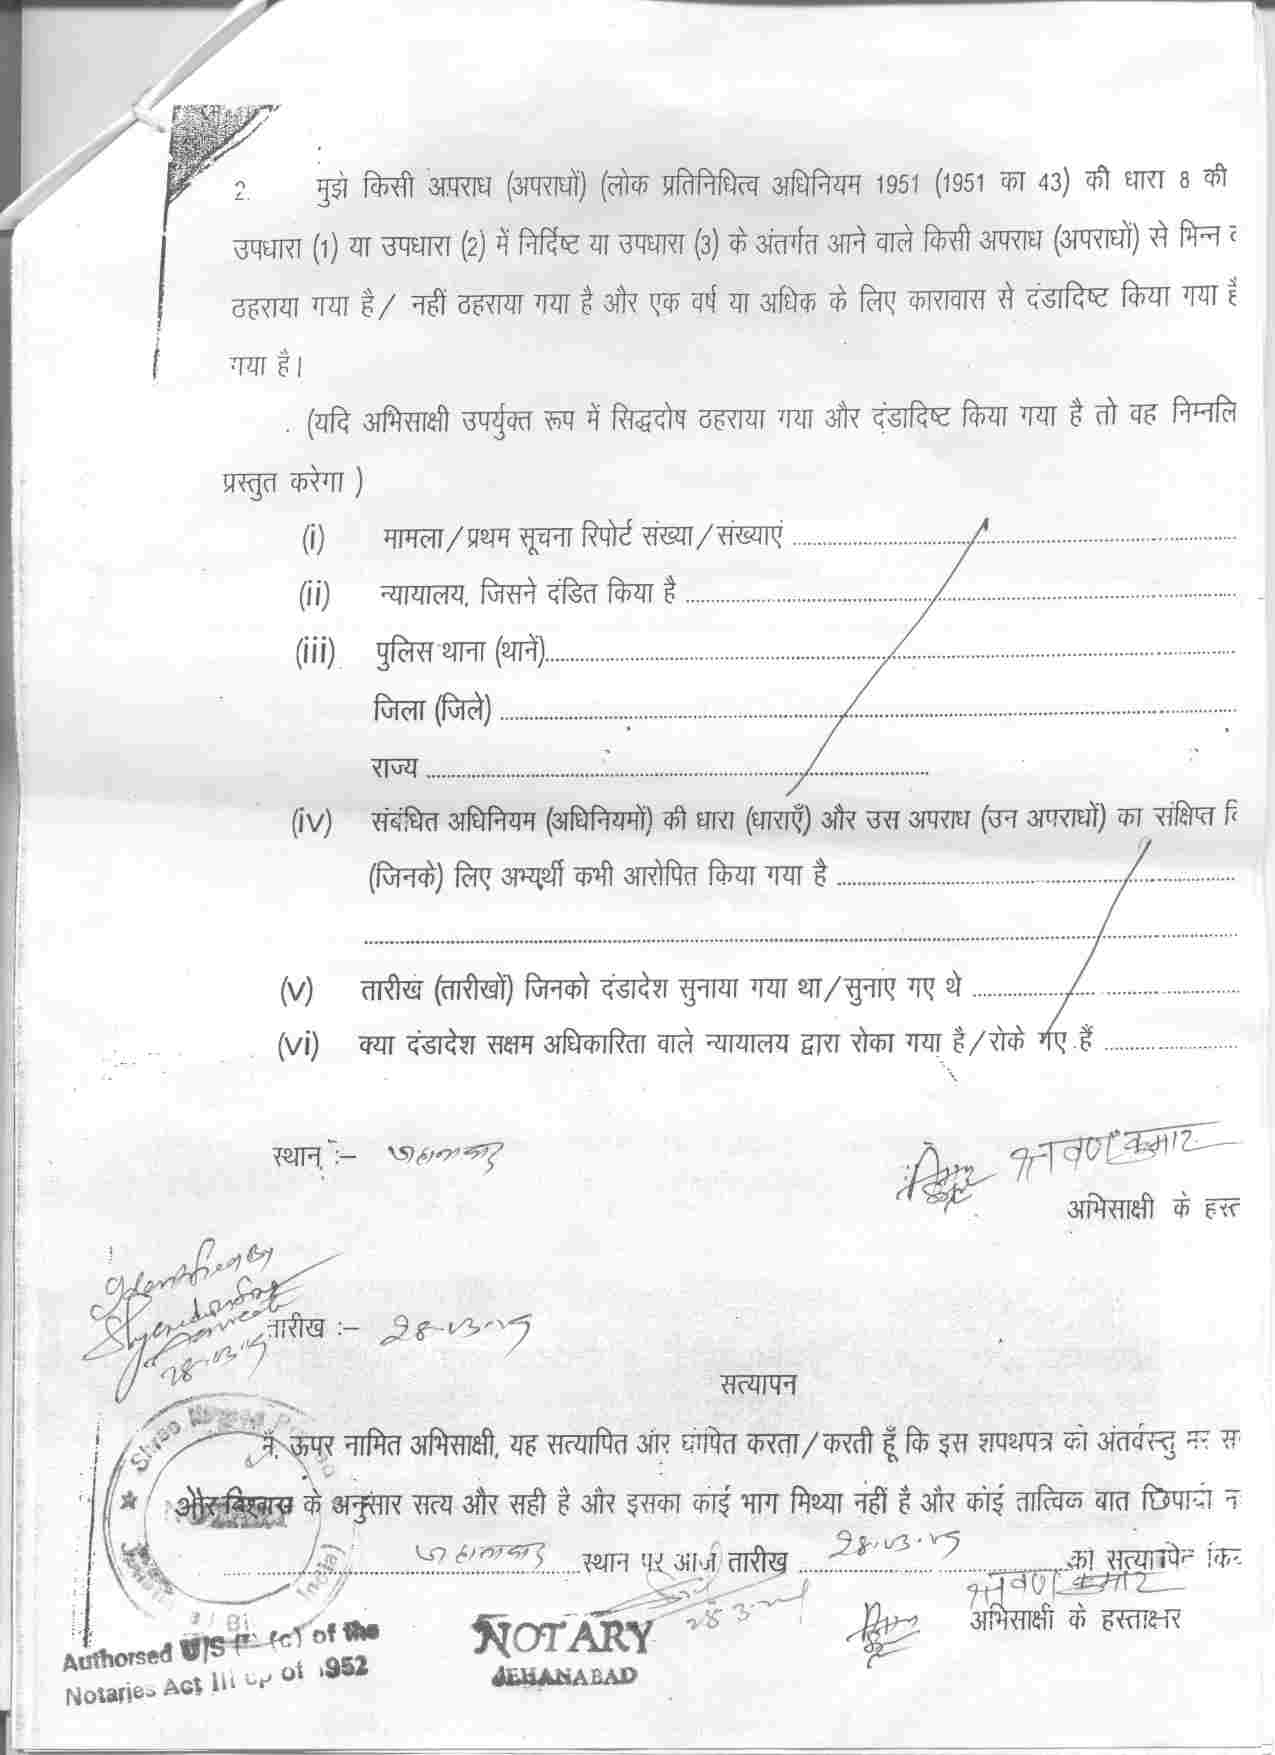 2. मुझे किसी अपराध (अपराधों) (लोक प्रतिनिधित्व अधिनियम 1951 (1951 का 43) की धारा 8 की
उपधारा (1) या उपधारा (2) में निर्दिष्ट या उपधारा (3) के अंतर्गत आने वाले किसी अपराध (अपराधों) से भिन्न
ठहराया गया है/ नहीं ठहराया गया है और एक वर्ष या अधिक के लिए कारावास से दंडादिष्ट किया गया है
गया है।
(यदि अभिसाक्षी उपर्युक्त रूप में सिद्धदोष ठहराया गया और दंडादिष्ट किया गया है तो वह निम्नलि
प्रस्तुत करेगा )
(i) मामला/प्रथम सूचना रिपोर्ट संख्या/संख्याएं
(ii) न्यायालय, जिसने दंडित किया है
(iii) पुलिस थाना (थानें)
जिला (जिले)
राज्य
(iv) संबंधित अधिनियम (अधिनियमों) की धारा (धाराएँ) और उस अपराध (उन अपराधों) का संक्षिप्त वि
(जिनके) लिए अभ्यर्थी कभी आरोपित किया गया है
(v) तारीख (तारीखों) जिनको दंडादेश सुनाया गया था/सुनाए गए थे
(vi) क्या दंडादेश सक्षम अधिकारिता वाले न्यायालय द्वारा रोका गया है/रोके गए हैं
स्थान :- जहानाबाद
श्रवण कुमार
अभिसाक्षी के हस्त
तारीख :- 28-03-19
28-03-19
सत्यापन
मैं, ऊपर नामित अभिसाक्षी, यह सत्यापित और घोषित करता/करती हूँ कि इस शपथपत्र की अंतर्वस्तु
और विश्वास के अनुसार सत्य और सही है और इसका कोई भाग मिथ्या नहीं है और कोई तात्विक बात छिपायी
जहानाबाद स्थान पर आज तारीख 28-03-19 को सत्यापित
श्रवण कुमार
अभिसाक्षी के हस्ताक्षर
NOTARY
JEHANABAD
Authorsed U/S (c) of the
Notaries Act of 1952